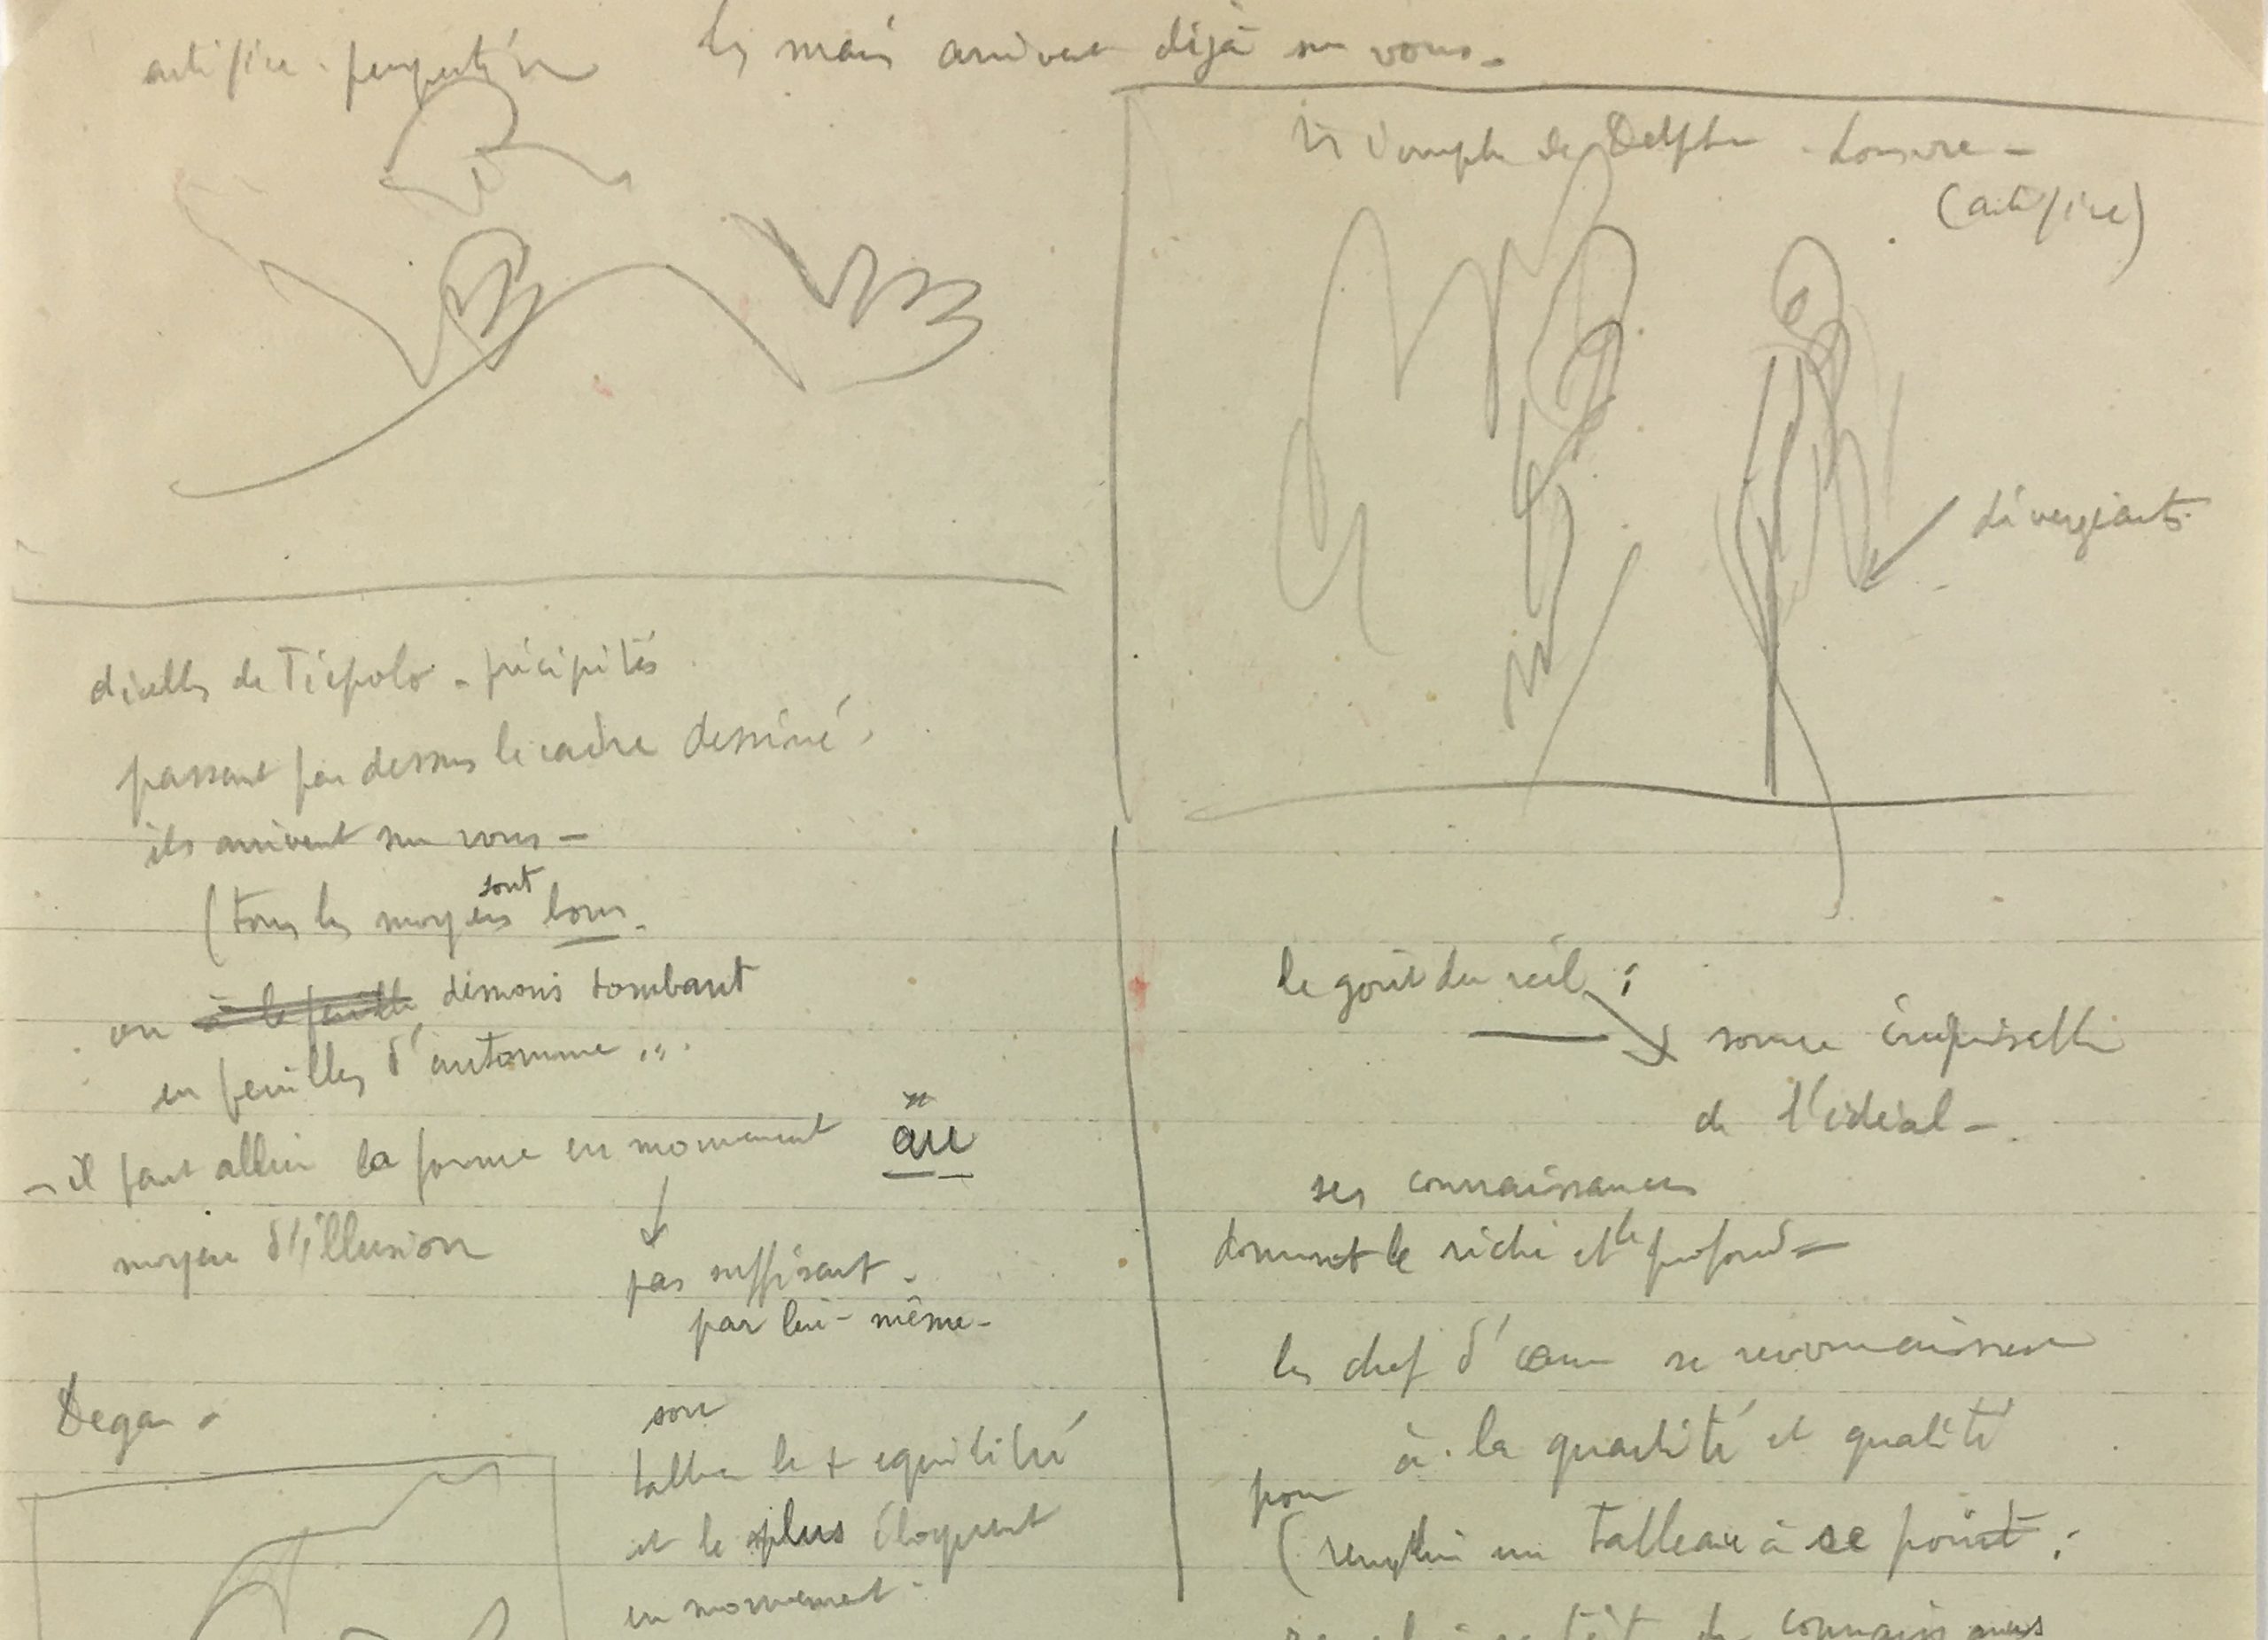 artifice - perspective les mains arrivent déjà sur vous -
Triomphe de Delphes - Louvre -
(artifice)
divergeants
de Tiepolo - précipités
passant par dessus le cadre dessiné,
ils arrivent sur vous -
(tous les moyens sont bons.
ou à la feuille démons tombant
en feuilles d'automne ...
- il faut allier la forme en mouvement au
moyen d'illusion
pas suffisant.
par lui-même -
Degas -
son
tableau le + equilibré
et le plus éloquent
en mouvement.
le goût du réel :
source inépuisable
de l'idéal -
ses connaissances
donnent le riche et le profond -
les chef d'œuvre se reconnaissent
à la quantité et qualité
pour
(remplir un tableau à ce point :
de connaissances